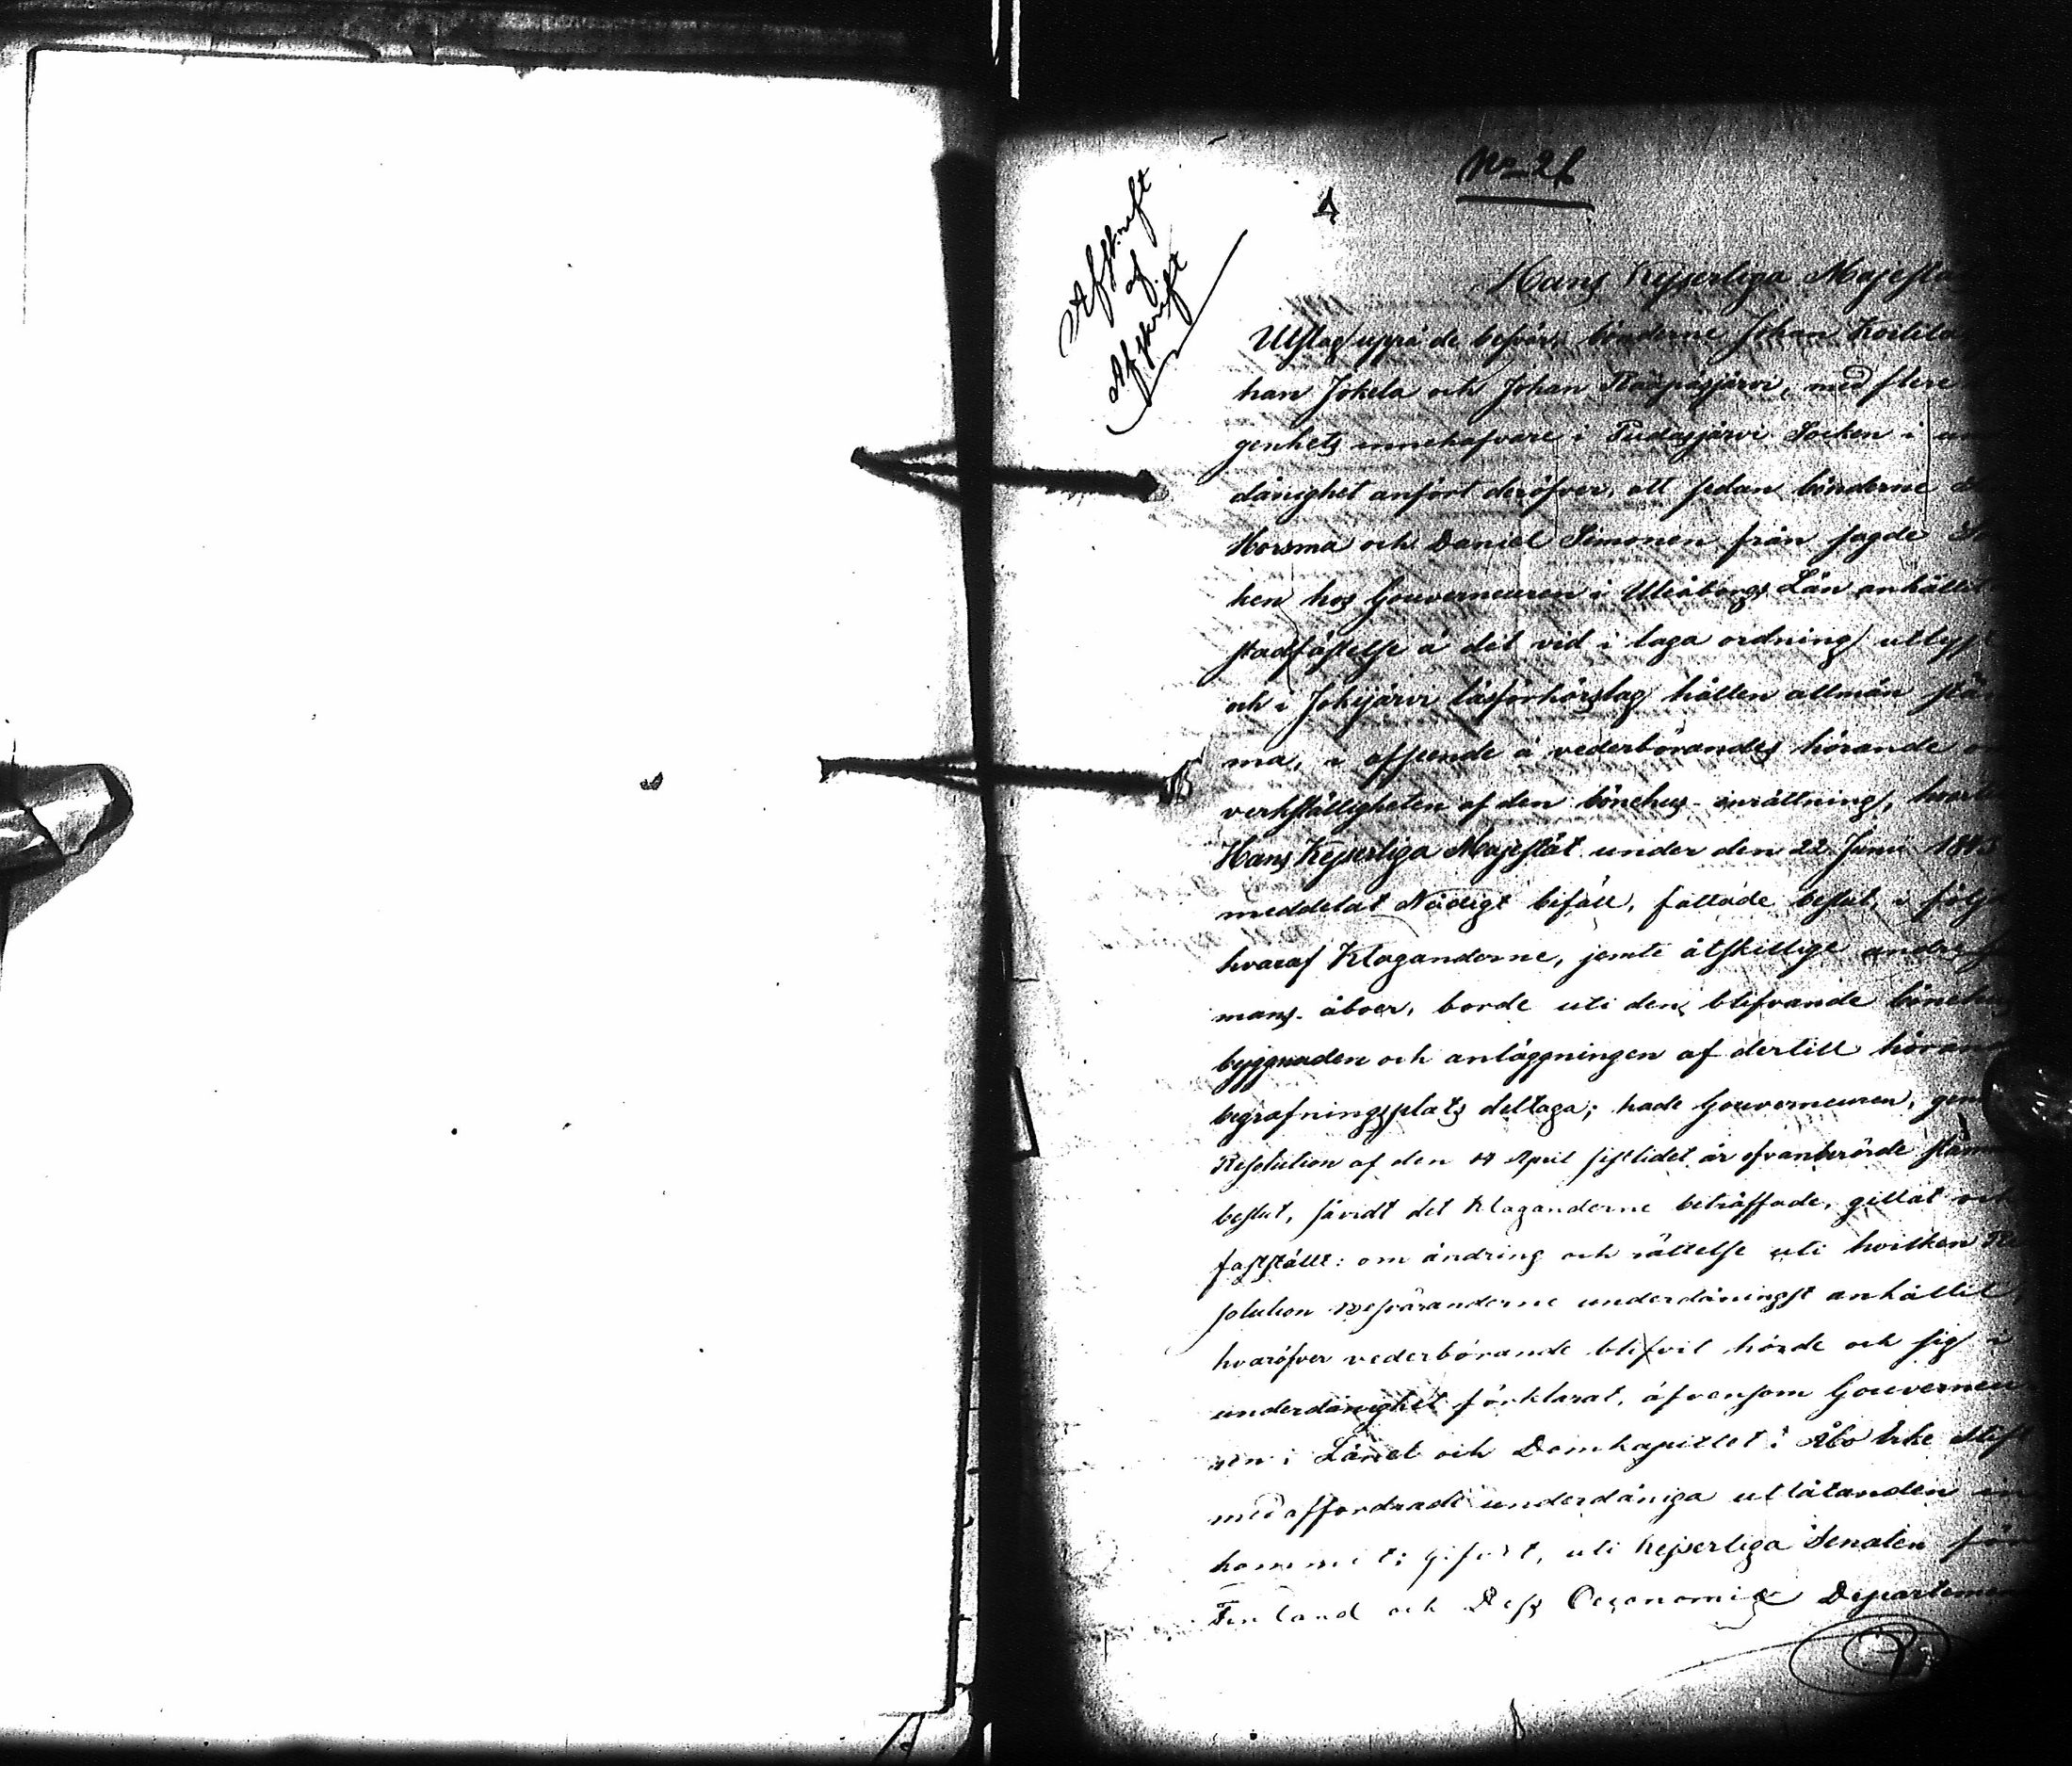 No 26
Afskrift
af
Afskrift
Hans Kejserliga Majestä
Utslag uppå de besvär, bönderne Johan
han Jokela och Johan med flere
genhets innehafvare i Pudasjärvi Socken i un
dånighet anfört deröfver, att sedan bönderne
Horsma och Daniel Simonen från sagde So
ken hos Gouverneuren i Uleåborgs Län anhållit
stadfästelse å det vid i laga ordning utlyst
och i Jokijärvi läsförhörslag hållen allmän stäm
ma, i afseende å vederbörandes hörande o
verkställigheten af den bönehus-inrättning, hvartil
Hans Kejserliga Majestät under den 22 Junii
meddelat Nådigt bifall, fattade beslut, i följd
hvaraf Klaganderne, jemte åtskillige andre
mans åboer, borde uti den blifvande bönehus
byggnaden och anläggningen af dertill hörand
begrafningsplats deltaga; hade Gouverneuren, geno
Resolution af den 14 April sistlidet år ofvanberörde stäm
beslut, såvidt det Klaganderne beträffade, gillat och
fastställt: om ändring och rättelse uti hvilken Re
solution Besväranderne underdånigst anhållit,
hvaröfver vederbörande blifvit hörde och sig i
underdånighet förklarat, äfvensom Gouverneu
ren i Länet och Domkapitlet i Åbo Erke Stift
med affordrade underdåniga utlåtanden in
kommit; gifvet, uti Kejserliga Senaten för
Finland och Dess Oeconomie Departemen